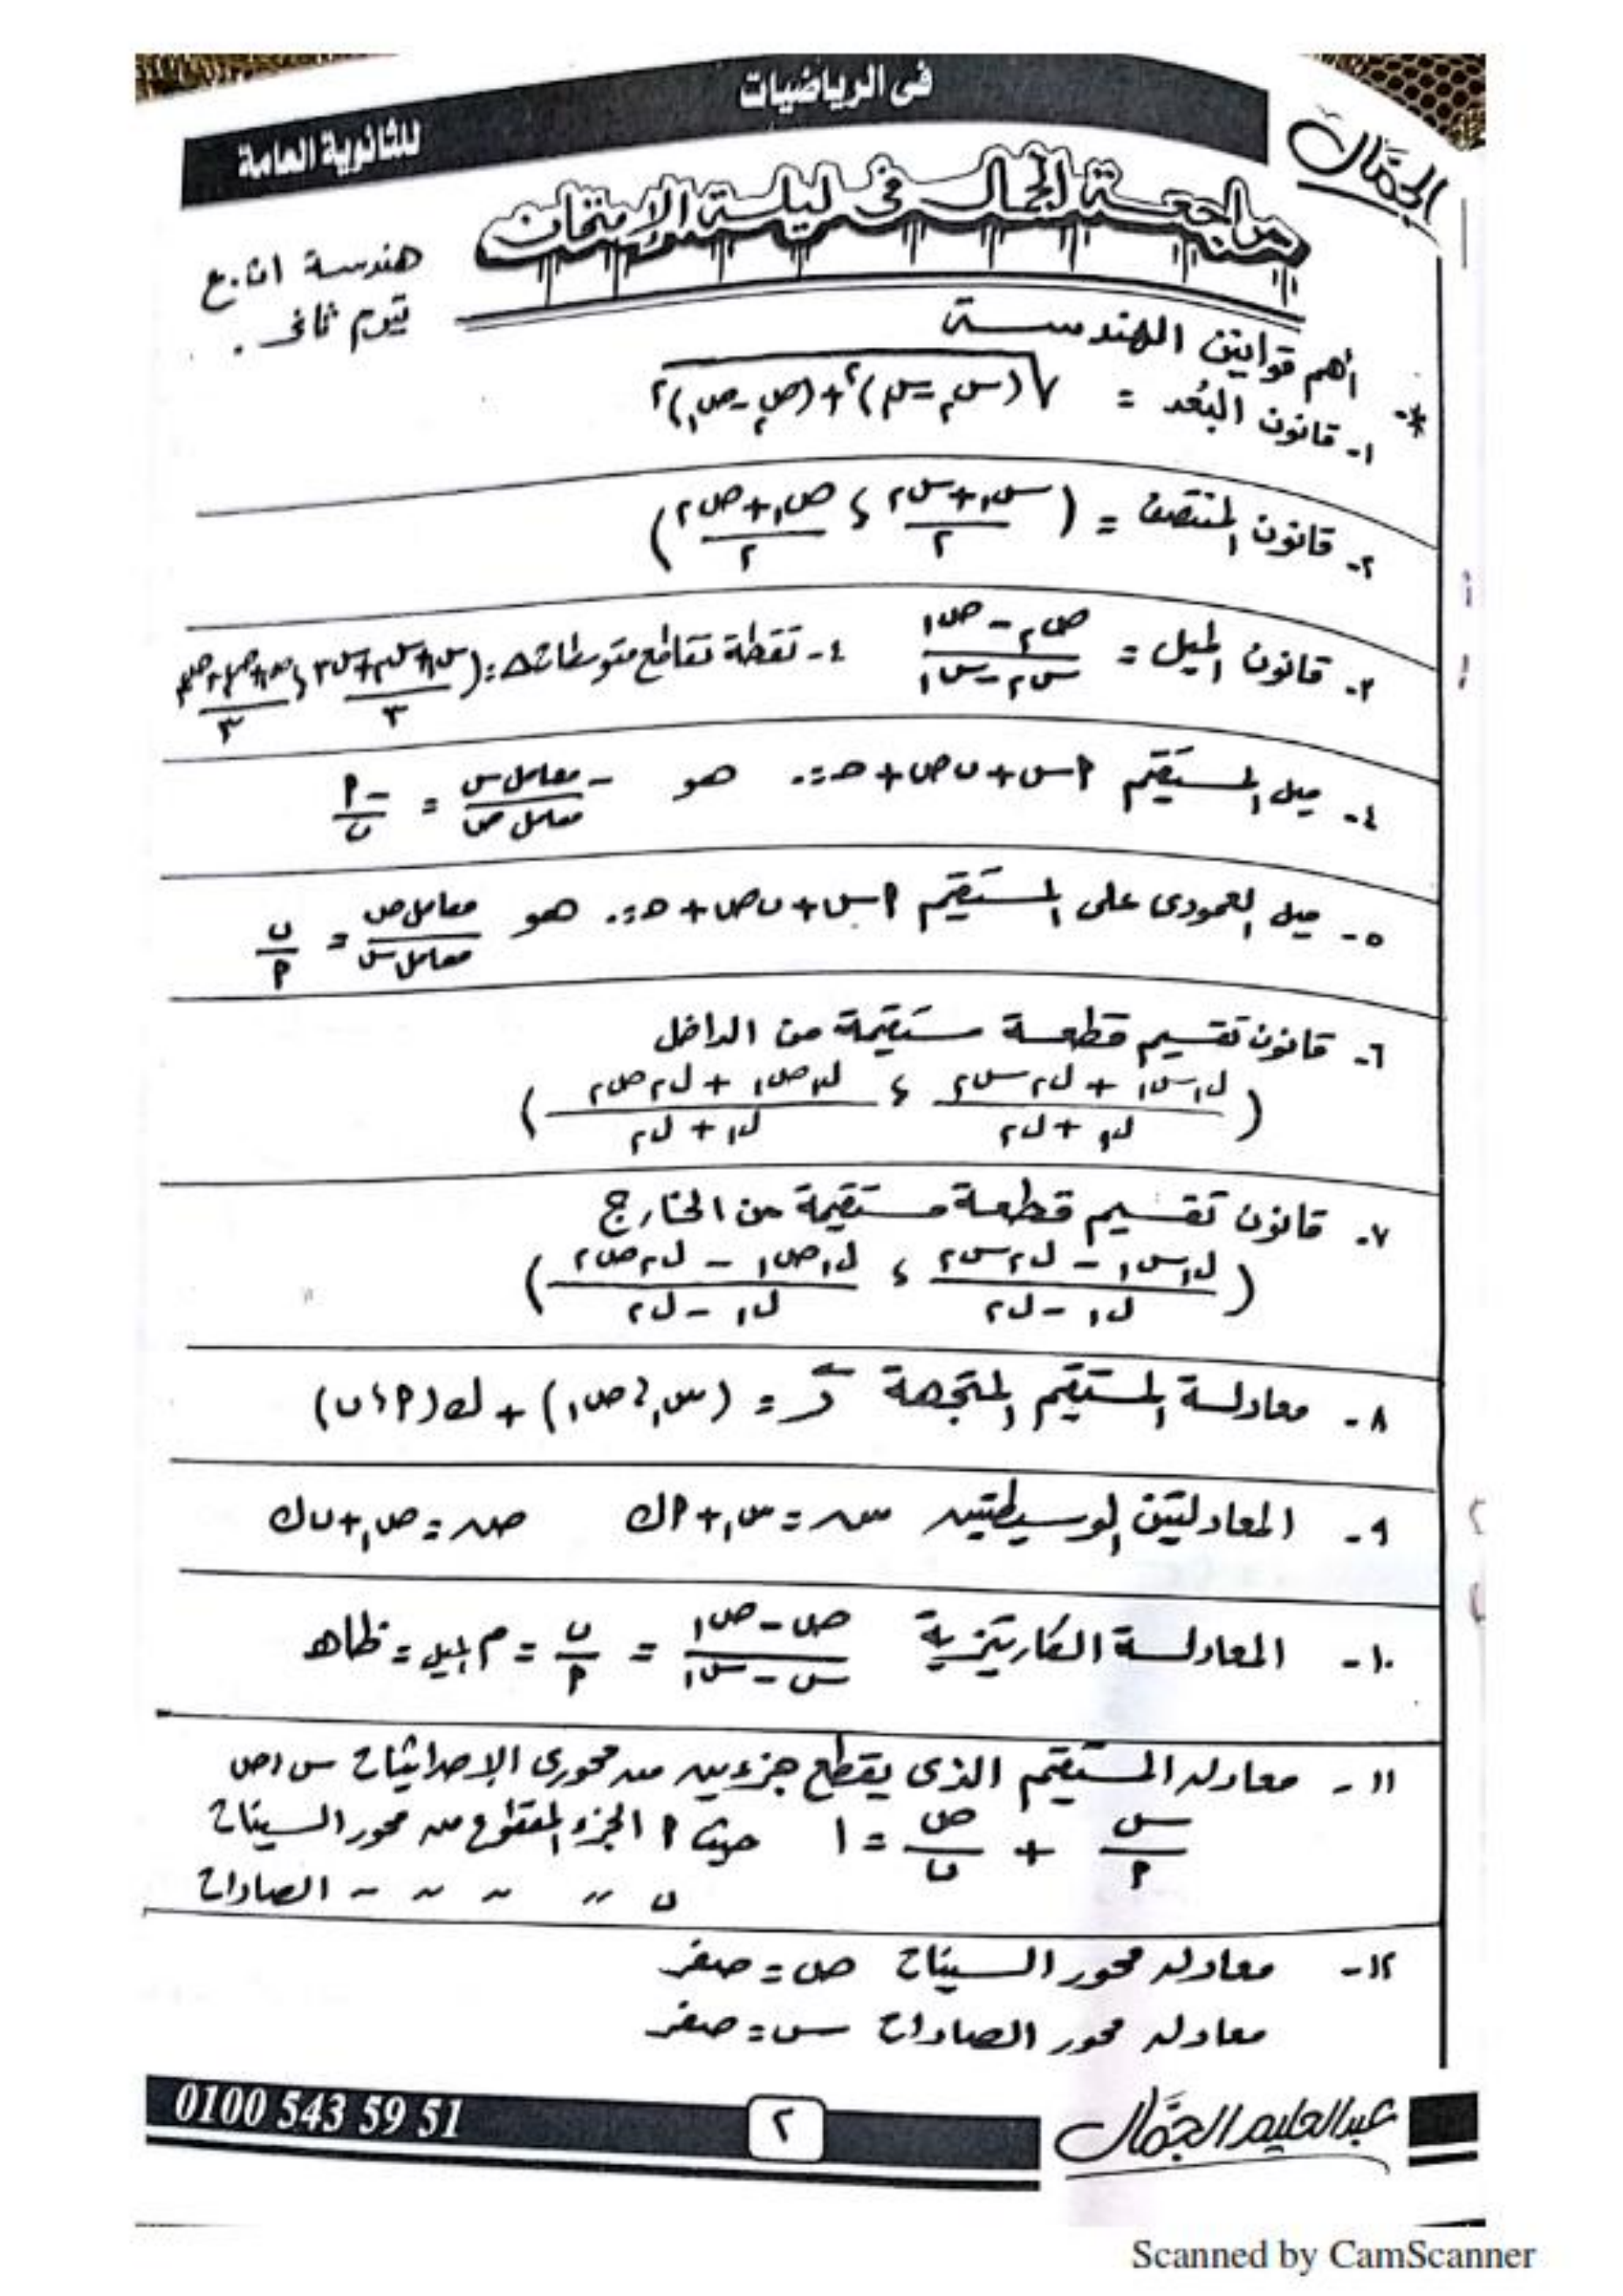 فى الرياضيات
الجمّال
للثانوية العامة
مراجعة الجمال فى ليلة الإمتحان
هندسة اث.ع
ترم ثانى .
*- أهم قوانين الهندسة
١- قانون البُعد = √(س٢ - س١)٢ + (ص٢ - ص١)٢
٢- قانون المنتصف = (س١ + س٢ / ٢ ؛ ص١ + ص٢ / ٢)
٣- قانون الميل = ص٢ - ص١ / س٢ - س١ ٤- نقطة تقاطع متوسطات Δ : (س١ + س٢ + س٣ / ٣ ؛ ص١ + ص٢ + ص٣ / ٣)
٤- ميل المستقيم ٩س + ب ص + ح = ٠ هو - معامل س / معامل ص = - ٩ / ب
٥- ميل العمودى على المستقيم ٩س + ب ص + ح = ٠ هو معامل ص / معامل س = ب / ٩
٦- قانون تقسيم قطعة مستقيمة من الداخل
(ل١س١ + ل٢س٢ / ل١ + ل٢ ؛ ل١ص١ + ل٢ص٢ / ل١ + ل٢)
٧- قانون تقسيم قطعة مستقيمة من الخارج
(ل١س١ - ل٢س٢ / ل١ - ل٢ ؛ ل١ص١ - ل٢ص٢ / ل١ - ل٢)
٨- معادلة المستقيم المتجهة ر = (س١ ؛ ص١) + ك(٩ ؛ ب)
٩- المعادلتين الوسيطتين س = س١ + ٩ك ص = ص١ + ب ك
١٠- المعادلة الكارتيزية ص - ص١ / س - س١ = ب / ٩ = م الميل = ظاه
١١- معادلة المستقيم الذى يقطع جزءين من محورى الإحداثيات س ، ص
س / ٩ + ص / ب = ١ حيث ٩ الجزء المقطوع من محور السينات
ب " " " " الصادات
١٢- معادلة محور السينات ص = صفر
معادلة محور الصادات س = صفر
عبدالحليم الجمّال
٢
0100 543 59 51
Scanned by CamScanner